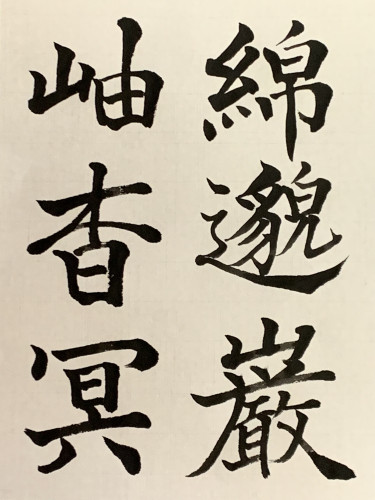 綿邈巌
岫杳冥